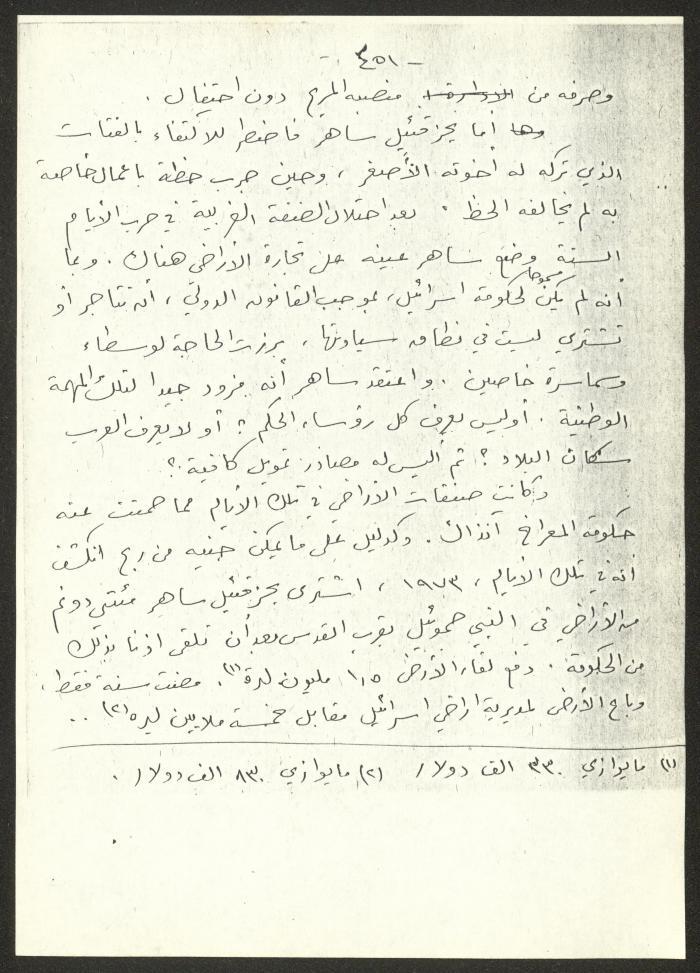 - ٤٥١ -
وصرفه من الادارة منصبه المريح دون احتفال .
وها أما يحزقئيل ساهر فاضطر للاكتفاء بالفتات
الذي تركه له أخوته الأصغر ، وحين جرب حظه بأعمال خاصة
به لم يحالفه الحظ . بعد احتلال الضفة الغربية في حرب الأيام
الستة وضع ساهر عينه على تجارة الأراضي هناك . وبما
أنه لم يكن مسموحا لحكومة اسرائيل ، بموجب القانون الدولي ، أن تتاجر أو
تشتري ليست في نطاق سيادتها ، برزت الحاجة لوسطاء
وسماسرة خاصين . واعتقد ساهر أنه مزود جيدا لتلك المهمة
الوطنية . أوليس يعرف كل رؤساء الحكم ؟ أو لا يعرف العرب
سكان البلاد ؟ ثم أليس له مصادر تمويل كافية ؟
وكانت صفقات الأراضي في تلك الأيام مما صمتت عنه
حكومة المعراخ آنذاك . وكدليل على ما يمكن جنيه من ربح انكشف
أنه في تلك الأيام ، ١٩٧٣ ، اشترى يحزقئيل ساهر مئتي دونم
من الأراضي في النبي صموئيل بقرب القدس بعد أن تلقى اذنا بذلك
من الحكومة . دفع لقاء الأرض ١,٥ مليون ليرة (١) . مضت سنة فقط .
وباع الأرض لمديرية اراضي اسرائيل مقابل خمسة ملايين ليره (٢) ..
(١) مايوازي ٣٣٠ الف دولار (٢) مايوازي ٨٣٠ الف دولار .